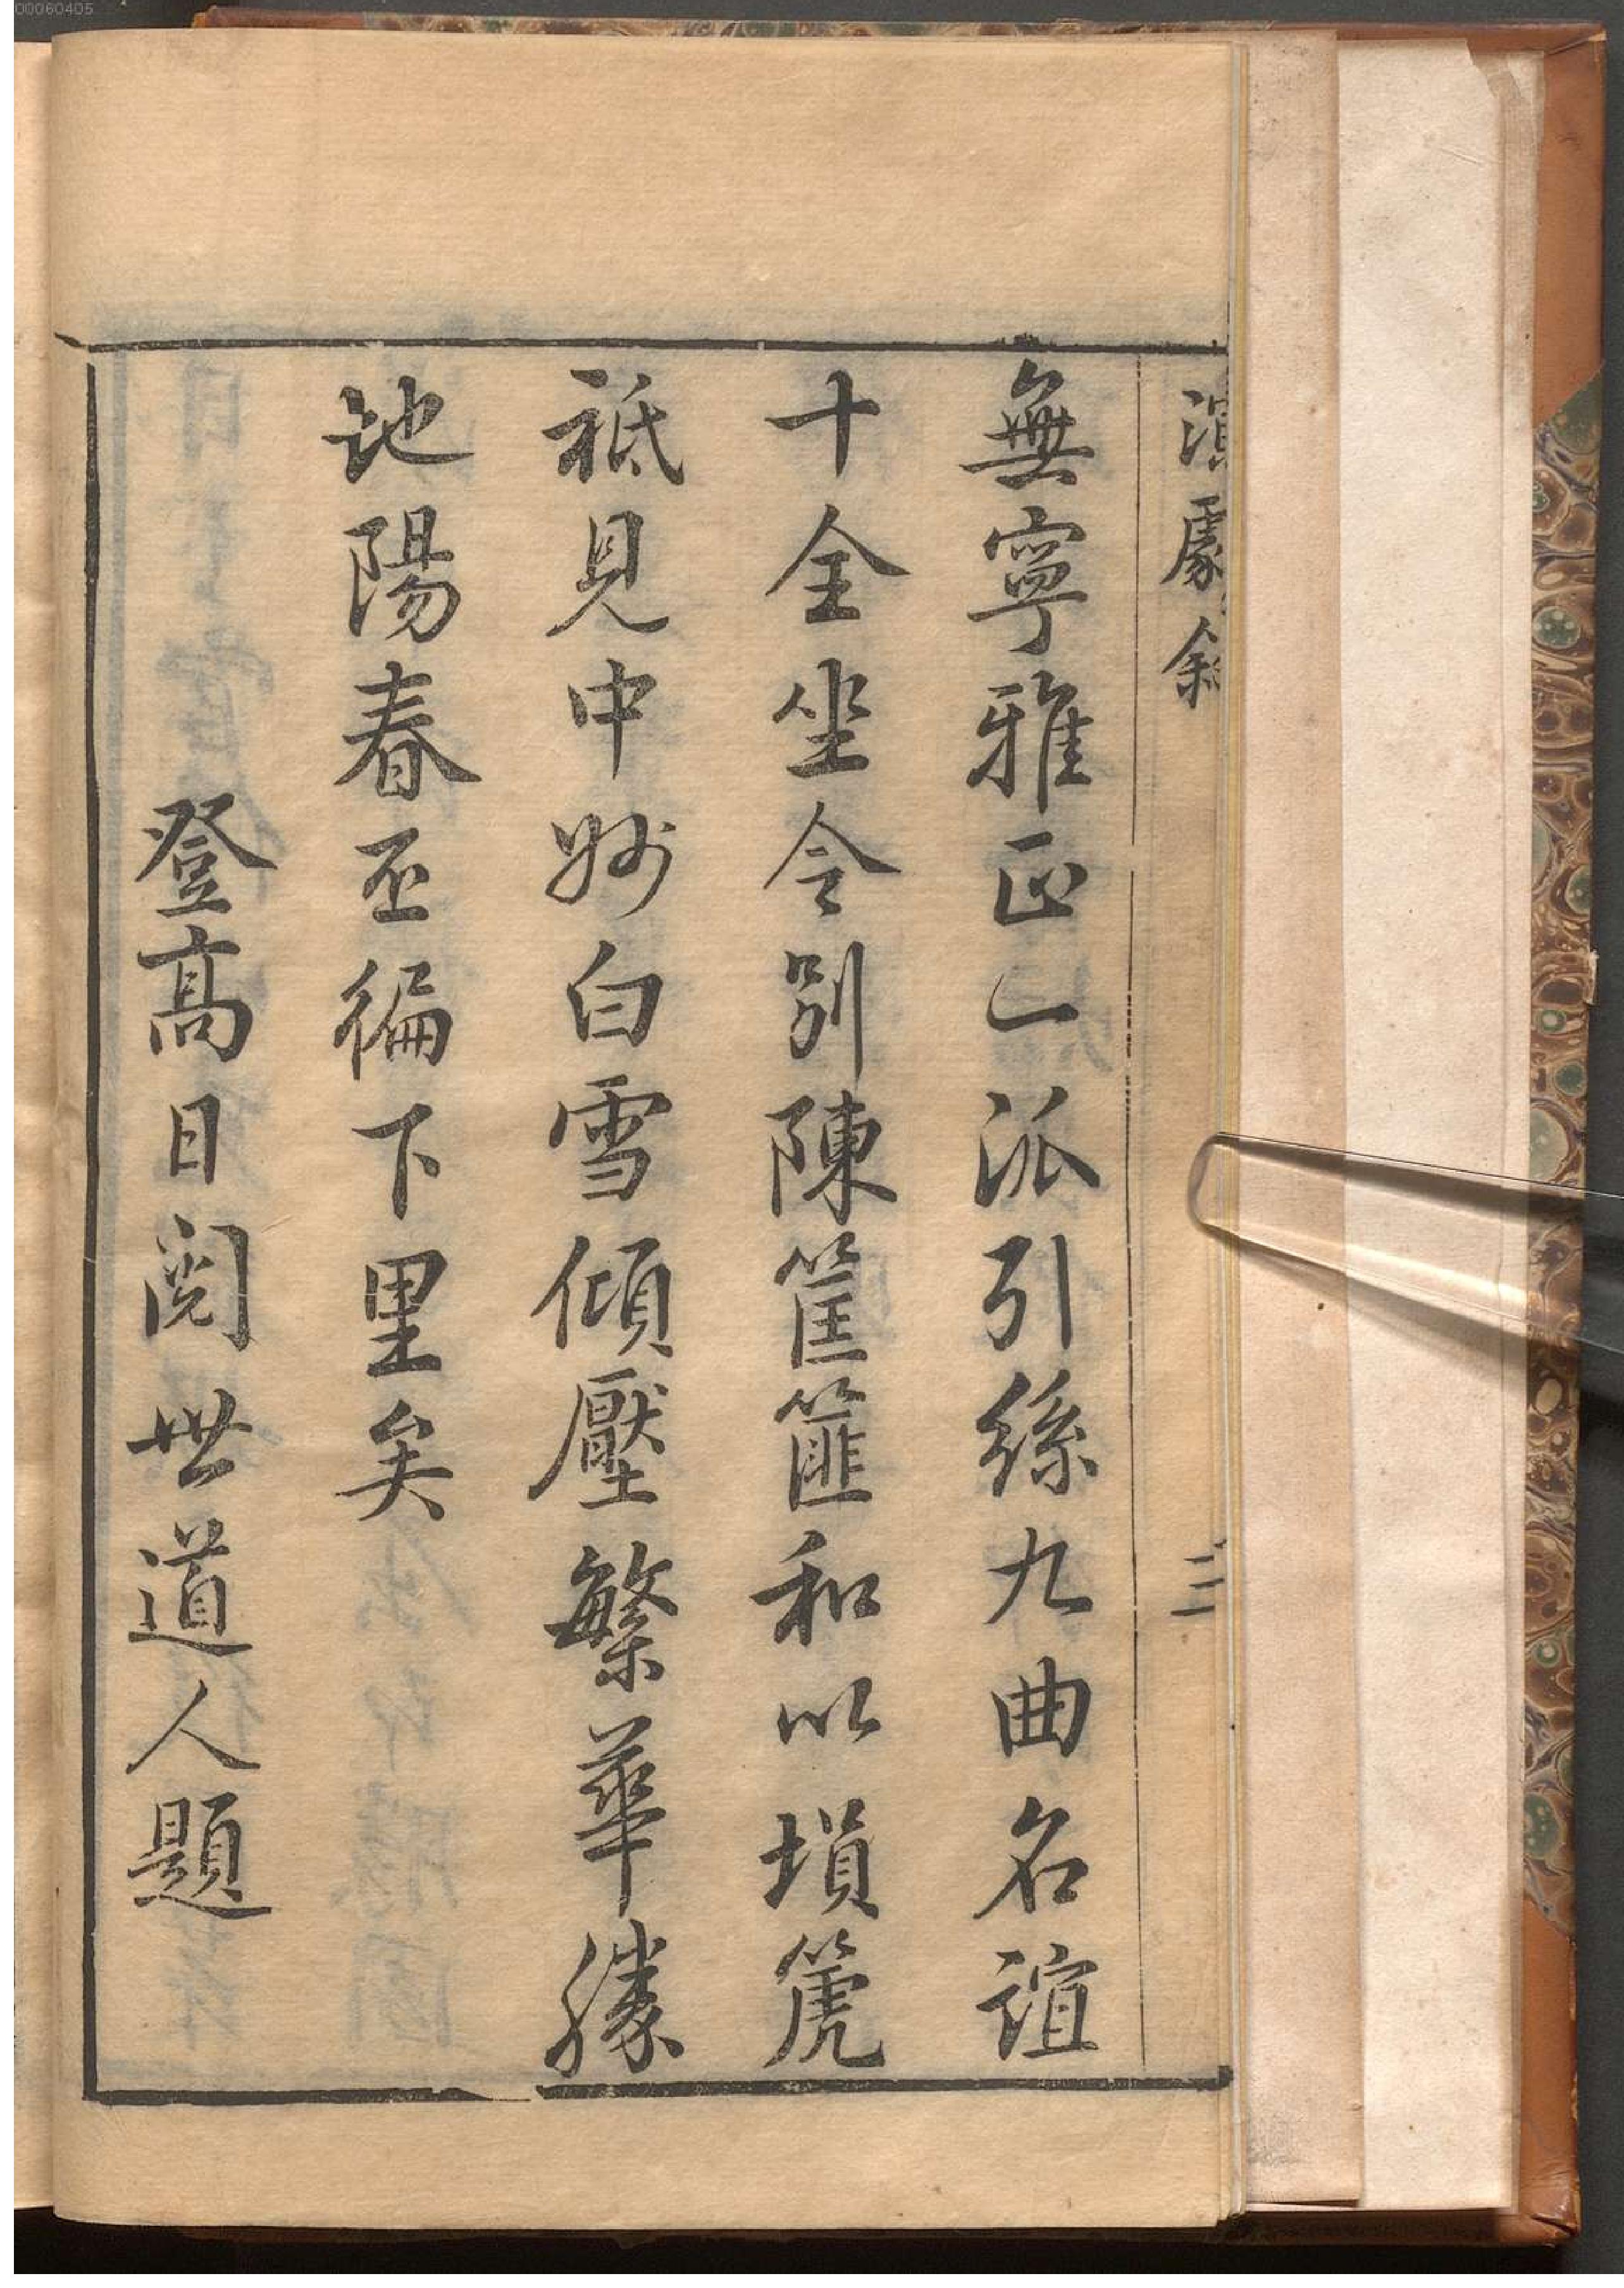 00060405
演劇叙
三
無寧雅正一派引絲九曲名誼
十全坐令別陳筐篚和以塤箎
祗見中妙白雪傾壓繁華勝
地陽春丕徧下里矣
登高日閲世道人題